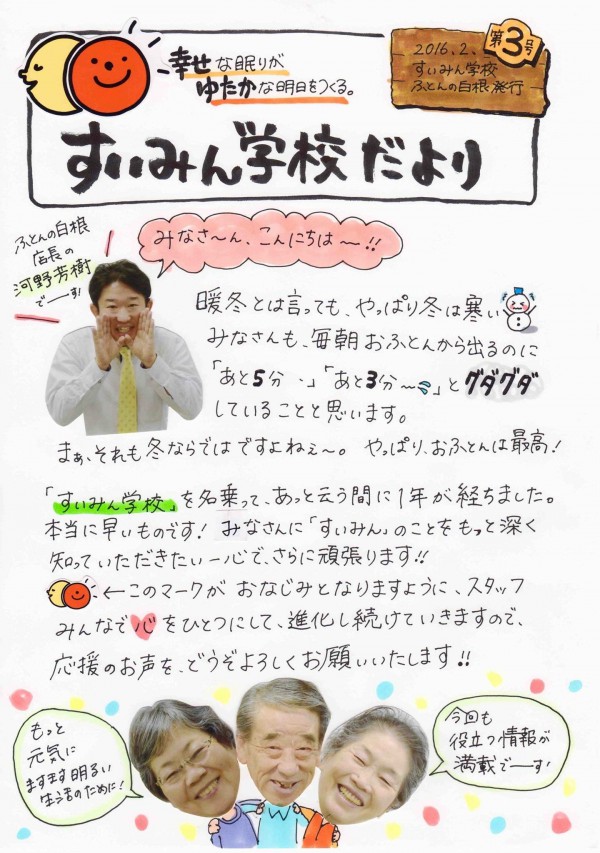 幸せな眠りが
ゆたかな明日をつくる。
第3号
2016.2.
すいみん学校
ふとんの白根 発行
すいみん学校だより
ふとんの白根
店長の
河野芳樹
でーす!
みなさ〜ん、こんにちは〜!!
暖冬とは言っても、やっぱり冬は寒い
みなさんも、毎朝おふとんから出るのに
「あと5分、、」「あと3分〜」とグダグダ
していることと思います。
まぁ、それも冬ならではですよねぇ〜。 やっぱり、おふとんは最高!
「すいみん学校」を名乗って、あっと云う間に1年が経ちました。
本当に早いものです! みなさんに「すいみん」のことをもっと深く
知っていただきたい一心で、さらに頑張ります!!
←このマークが おなじみとなりますように、スタッフ
みんなで心をひとつにして、進化し続けていきますので、
応援のお声を、どうぞよろしくお願いいたします!!
もっと
元気に
ますます明るい
生活のために!
今回も
役立つ情報が
満載でーす!